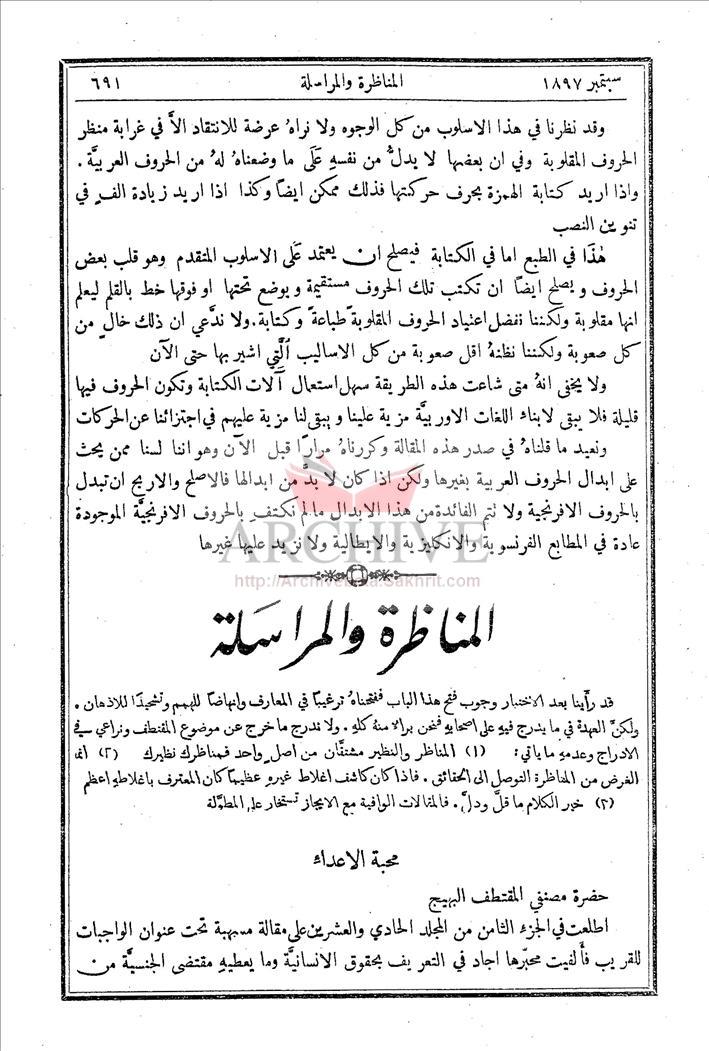 سبتمبر ١٨٩٧ المناظرة والمراسلة ٦٩١
وقد نظرنا في هذا الاسلوب من كل الوجوه ولا نراهُ عرضة للانتقاد الأَّ في غرابة منظر
الحروف المقلوبة وفي ان بعضها لا يدلُّ من نفسهِ عَلَى ما وضعناهُ لهُ من الحروف العربيَّة .
واذا اريد كتابة الهمزة بحرف حركتها فذلك ممكن ايضاً وكذا اذا اريد زيادة الف في
تنوين النصب
هٰذَا في الطبع اما في الكتابة فيصلح ان يعتمد عَلَى الاسلوب المتقدم وهو قلب بعض
الحروف ويصلح ايضاً ان تكتب تلك الحروف مستقيمة ويوضع تحتها او فوقها خط بالقلم ليعلم
انها مقلوبة ولكننا نفضل اعتياد الحروف المقلوبة طباعةً وكتابة. ولا ندَّعي ان ذلك خالٍ من
كل صعوبة ولكننا نظنهُ اقل صعوبة من كل الاساليب الَّتِي اشير بها حتى الآن
ولا يخفى انهُ متى شاعت هذه الطريقة سهل استعمال آلات الكتابة وتكون الحروف فيها
قليلة فلا يبقى لابناء اللغات الاوربيَّة مزية علينا ويبقى لنا مزية عليهم في اجتزائنا عن الحركات
ونعيد ما قلناهُ في صدر هذه المقالة وكررناهُ مراراً قبل الآن وهو اننا لسنا ممن يحث
على ابدال الحروف العربية بغيرها ولكن اذا كان لا بدَّ من ابدالها فالاصلح والاربح ان تبدل
بالحروف الافرنجية ولا تتم الفائدة من هذا الابدال ما لم نكتفِ بالحروف الافرنجيَّة الموجودة
عادة في المطابع الفرنسوية والانكليزية والايطالية ولا نزيد عليها غيرها
ARCHIVE
http://Archivebeta.Sakhrit.com
المناظرة والمراسلة
قد رأينا بعد الاختبار وجوب فتح هذا الباب ففتحناهُ ترغيباً في المعارف وانهاضاً للهمم وتشحيذاً للاذهان .
ولكنَّ العهدة في ما يدرج فيهِ على اصحابهِ فنحن براء منهُ كلهِ . ولا ندرج ما خرج عن موضوع المقتطف ونراعي في
الادراج وعدمهِ ما ياتي: (١) المناظر والنظير مشتقَّان من اصل واحد فمناظرك نظيرك (٢) انما
الغرض من المناظرة التوصل الى الحقائق . فاذا كان كاشف اغلاط غيرهِ عظيماً كان المعترف باغلاطهِ اعظم
(٣) خير الكلام ما قلَّ ودلَّ . فالمقالات الوافية مع الايجاز تستخار على المطوَّلة
محبة الاعداء
حضرة مصنفي المقتطف البهيج
اطلعت في الجزء الثامن من المجلد الحادي والعشرين على مقالة مسهبة تحت عنوان الواجبات
للقريب فأَلفيت محبّرها اجاد في التعريف بحقوق الانسانيَّة وما يعطيهِ مقتضى الجنسيَّة من